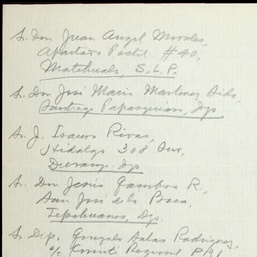 Sr. Don Juan Angel Morales,
Apartado Postal #40,
Matehuala, S.L.P.
Sr. Don José María Martínez
Santiago Papasquiaro, Dgo
Sr. J. Isauro Rivas,
Hidalgo 308 Sur,
Durango, Dgo
Sr. Don Jesús Gamboa R.,
San José de la Boca,
Tepehuanes, Dgo.
Sr. Dip. Gonzalo Salas Rodríguez,
a/c Comité Regional PRI